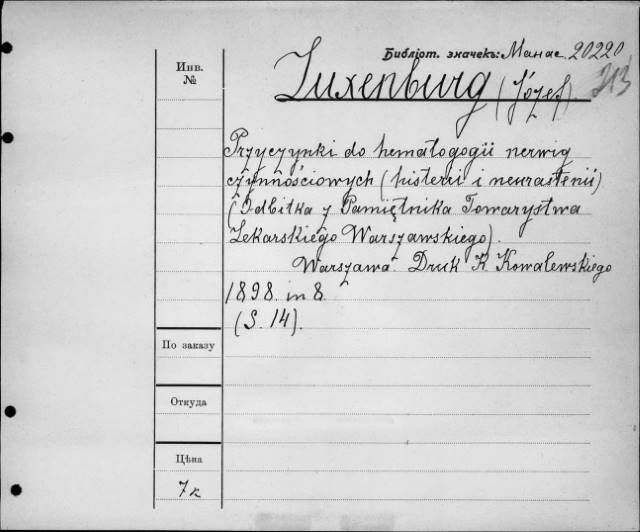 Библіот. значекъ: Манас. 20220
Инв.
№
Luxenburg (Józef) 213
Przyczynki do hematogogii nerwiq
czynnościowych (histerii i neurastenii)
(Odbitka z Pamiętnika Towarystwa
Lekarskiego Warszawskiego).
Warszawa. Druk K. Kowalewskiego
1898. in 8.
(S. 14).
По заказу
Откуда
Цѣна
7к